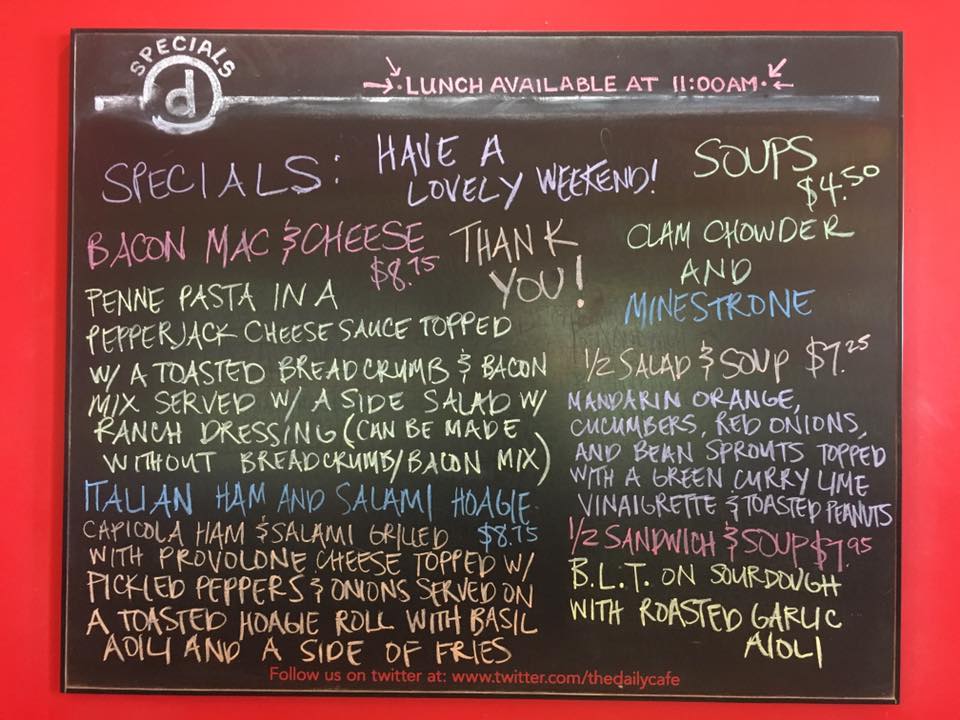 SPECIALS
d
LUNCH AVAILABLE AT 11:00AM
SPECIALS:
HAVE A
LOVELY WEEKEND!
THANK
YOU!
BACON MAC & CHEESE
$8.75
PENNE PASTA IN A
PEPPERJACK CHEESE SAUCE TOPPED
W/ A TOASTED BREADCRUMB & BACON
MIX SERVED W/ A SIDE SALAD W/
RANCH DRESSING (CAN BE MADE
WITHOUT BREADCRUMB/BACON MIX)
ITALIAN HAM AND SALAMI HOAGIE
$8.75
CAPICOLA HAM & SALAMI GRILLED
WITH PROVOLONE CHEESE TOPPED W/
PICKLED PEPPERS & ONIONS SERVED ON
A TOASTED HOAGIE ROLL WITH BASIL
AOILI AND A SIDE OF FRIES
SOUPS
$4.50
CLAM CHOWDER
AND
MINESTRONE
1/2 SALAD & SOUP $7.25
MANDARIN ORANGE,
CUCUMBERS, RED ONIONS,
AND BEAN SPROUTS TOPPED
WITH A GREEN CURRY LIME
VINAIGRETTE & TOASTED PEANUTS
1/2 SANDWICH & SOUP $7.95
B.L.T. ON SOURDOUGH
WITH ROASTED GARLIC
AIOLI
Follow us on twitter at: www.twitter.com/thedailycafe